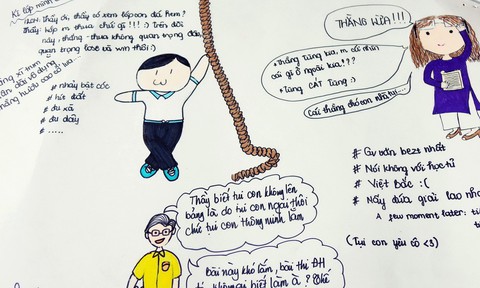 Kỉ lớp mình
thầy ơi, thầy có xem lớp con đá hem?
Thầy: lớp m thua chắc gì !!! :) Trên đời
này, thắng - thua không quan trọng đâu,
quan trọng lose và win thôi :)
# nhảy bật cóc
# hít đất
# đu xà
# đu dây
# .....
THẰNG KIA!!!
* Thằng Tùng kia, m cái nhìn
cái gì ở ngoài kia!???
* Tùng CÁT Tùng :)
Cái thằng chó con nhà tui...
# Gv văn bezt nhất
# Nói không với học tủ
# Việt Bắc :(
# Nấy đứa giải lao nha
A few moment later:
(Tụi con yêu cô <3)
Thầy biết tụi con không lên
bảng là do tụi con ngại thôi
chứ tụi con thông minh lắm
Bài này khó lắm, bài thi ĐH
biết làm à?